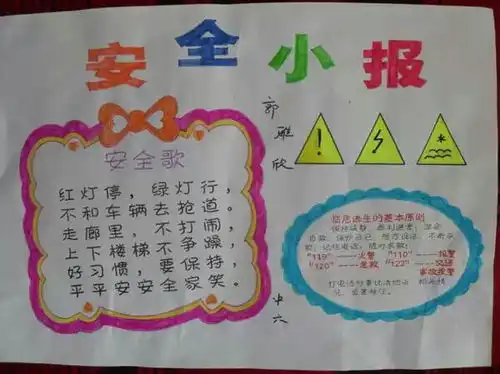 安全小报
郭雅欣
安全歌
红灯停，绿灯行，
不和车辆去抢道。
走廊里，不打闹，
上下楼梯不争躁，
好习惯，要保持，
平平安安全家笑。
中六
临危逃生的基本原则
保持镇静，
"119"——火警 "110"——报警
"120"——急救 "122"——交通
事故报警